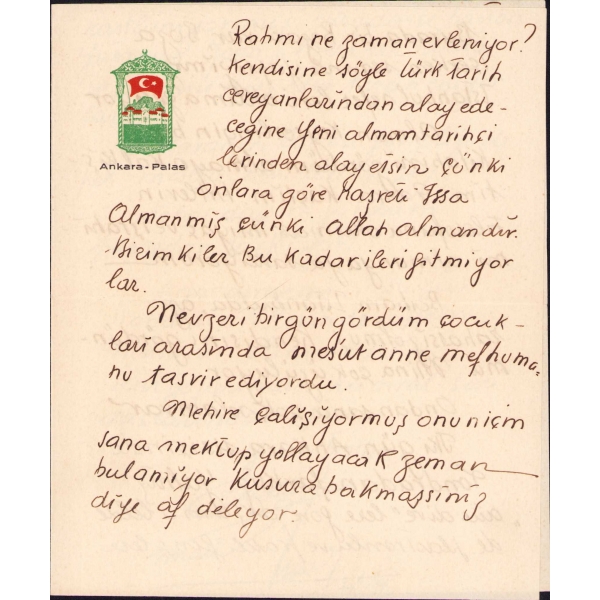 Rahmi ne zaman evleniyor?
Kendisine söyle Türk tarih
cereyanlarından alay ede-
ceğine Yeni alman tarihçi
lerinden alay etsin çünki
onlara göre Hazreti Issa
Almanmiş çünki allah almandır.
Bizimkiler Bu kadar ileri gitmiyor
lar.
Ankara - Palas
Nevzeri bir gün gördüm çocuk-
ları arasında mesut anne mefhumu-
nu tasvir ediyordu.
Mehire çalışıyormuş onun içim
sana mektup yollayacak zeman
bulamiyor Kusura bakmassiniz
diye af deleyor.